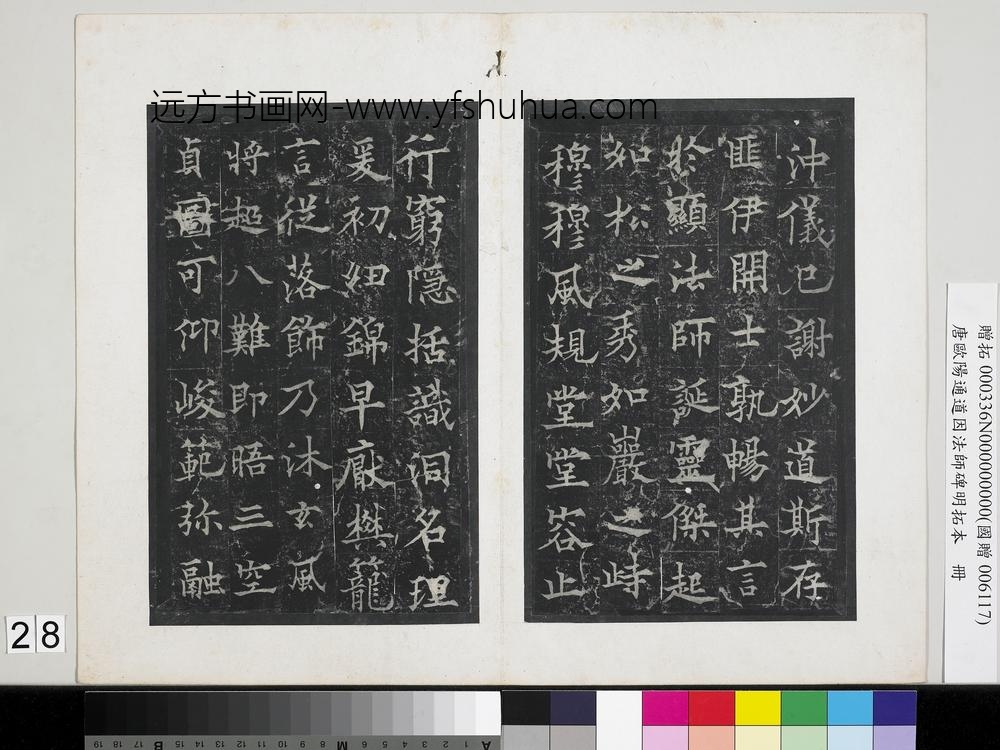 远方书画网-www.yfshuhua.com
沖儀已謝妙道斯存
匪伊開士孰暢其言
於顯法師誕靈傑起
如松之秀如巖之峙
穆穆風規堂堂容止
行窮隱括識洞名理
爰初紐錦早厭樊籠
言從落飾乃沐玄風
將超八難即晤三空
貞圖可仰峻範弥融
贈拓 000336N000000000(國贈 006117)
唐歐陽通道因法師碑明拓本 冊
28